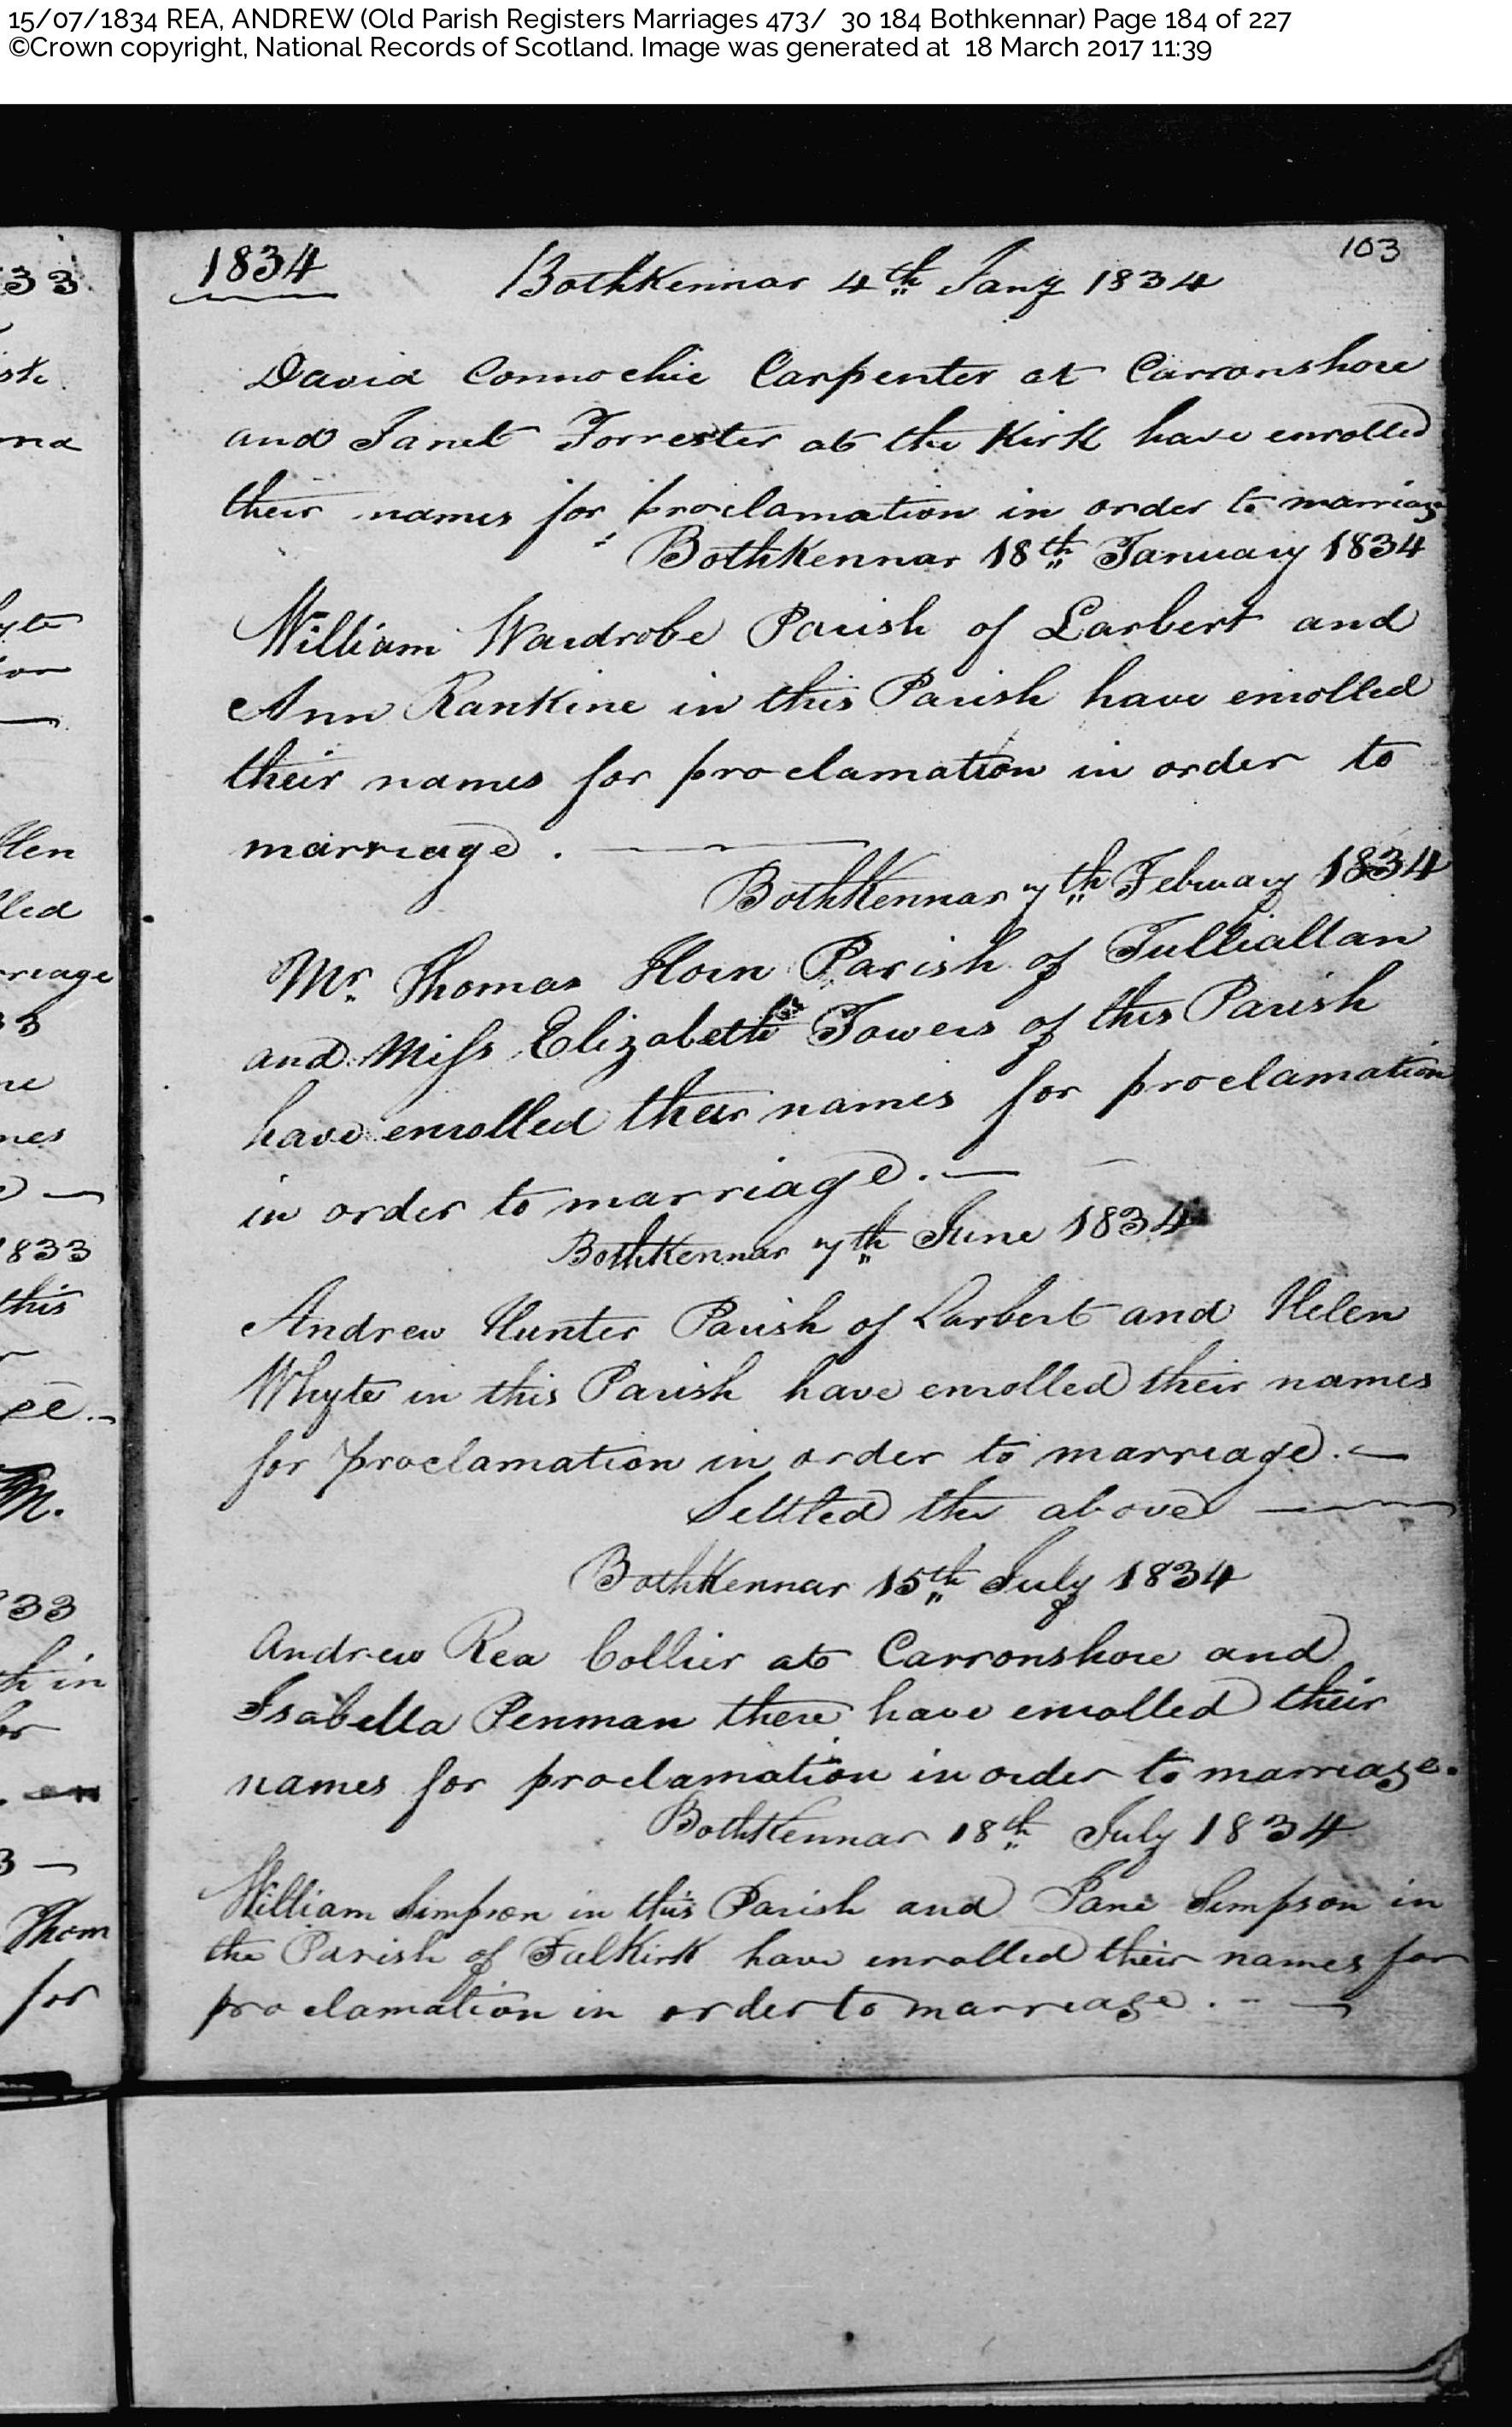 15/07/1834 REA, ANDREW (Old Parish Registers Marriages 473/  30 184 Bothkennar) Page 184 of 227
©Crown copyright, National Records of Scotland. Image was generated at  18 March 2017 11:39
1834
103
BothKennar 4th Jany 1834
David Connochie Carpenter at Carronshore
and Janet Forrester at the Kirk have enrolled
their names for proclamation in order to marriage
BothKennar 18th January 1834
William Wardrobe Parish of Larbert and
Ann Rankine in this Parish have enrolled
their names for proclamation in order to
marriage.
BothKennar 7th February 1834
Mr. Thomas Horn Parish of Tulliallan
and Miss Elizabeth Towers of this Parish
have enrolled their names for proclamation
in order to marriage. —
BothKennar 7th June 1834
Andrew Hunter Parish of Larbert and Helen
Whyte in this Parish have enrolled their names
for proclamation in order to marriage. —
Settled the above —
BothKennar 15th July 1834
Andrew Rea Collier at Carronshore and
Isabella Penman there have enrolled their
names for proclamation in order to marriage.
BothKennar 18th July 1834
William Simpson in this Parish and Jane Simpson in
the Parish of Falkirk have enrolled their names for
proclamation in order to marriage. - —
33
Hen
lled
rriage
33
mes
1833
this
833
th in
Thom
for